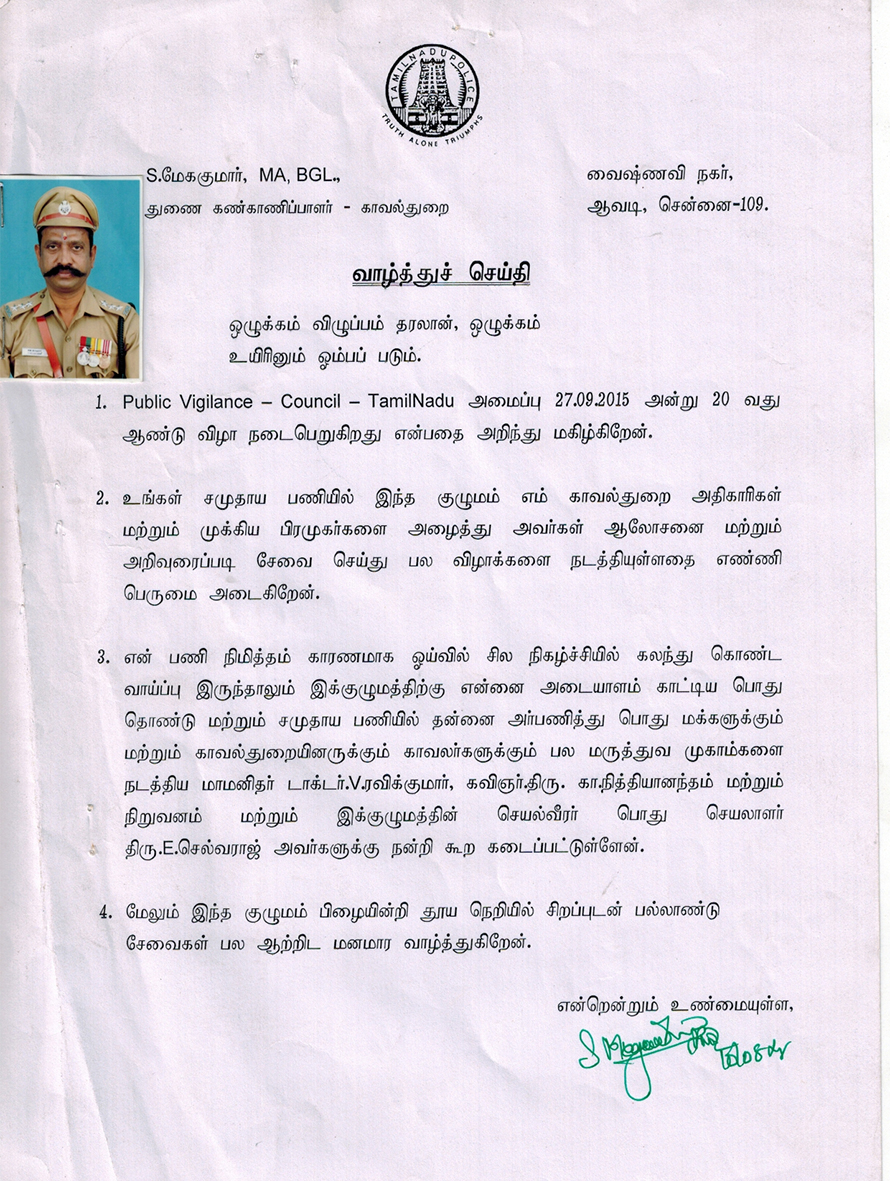 TAMILNADU POLICE
TRUTH ALONE TRIUMPHS
S.மேககுமார், MA, BGL.,
துணை கண்காணிப்பாளர் - காவல்துறை
வைஷ்ணவி நகர்,
ஆவடி, சென்னை-109.
வாழ்த்துச் செய்தி
ஒழுக்கம் விழுப்பம் தரலான், ஒழுக்கம்
உயிரினும் ஓம்பப் படும்.
1. Public Vigilance – Council – TamilNadu அமைப்பு 27.09.2015 அன்று 20 வது
ஆண்டு விழா நடைபெறுகிறது என்பதை அறிந்து மகிழ்கிறேன்.
2. உங்கள் சமுதாய பணியில் இந்த குழுமம் எம் காவல்துறை அதிகாரிகள்
மற்றும் முக்கிய பிரமுகர்களை அழைத்து அவர்கள் ஆலோசனை மற்றும்
அறிவுரைப்படி சேவை செய்து பல விழாக்களை நடத்தியுள்ளதை எண்ணி
பெருமை அடைகிறேன்.
3. என் பணி நிமித்தம் காரணமாக ஓய்வில் சில நிகழ்ச்சியில் கலந்து கொண்ட
வாய்ப்பு இருந்தாலும் இக்குழுமத்திற்கு என்னை அடையாளம் காட்டிய பொது
தொண்டு மற்றும் சமுதாய பணியில் தன்னை அர்பணித்து பொது மக்களுக்கும்
மற்றும் காவல்துறையினருக்கும் காவலர்களுக்கும் பல மருத்துவ முகாம்களை
நடத்திய மாமனிதர் டாக்டர்.V.ரவிக்குமார், கவிஞர்.திரு. கா.நித்தியானந்தம் மற்றும்
நிறுவனம் மற்றும் இக்குழுமத்தின் செயல்வீரர் பொது செயலாளர்
திரு.E.செல்வராஜ் அவர்களுக்கு நன்றி கூற கடைப்பட்டுள்ளேன்.
4. மேலும் இந்த குழுமம் பிழையின்றி தூய நெறியில் சிறப்புடன் பல்லாண்டு
சேவைகள் பல ஆற்றிட மனமார வாழ்த்துகிறேன்.
என்றென்றும் உண்மையுள்ள,